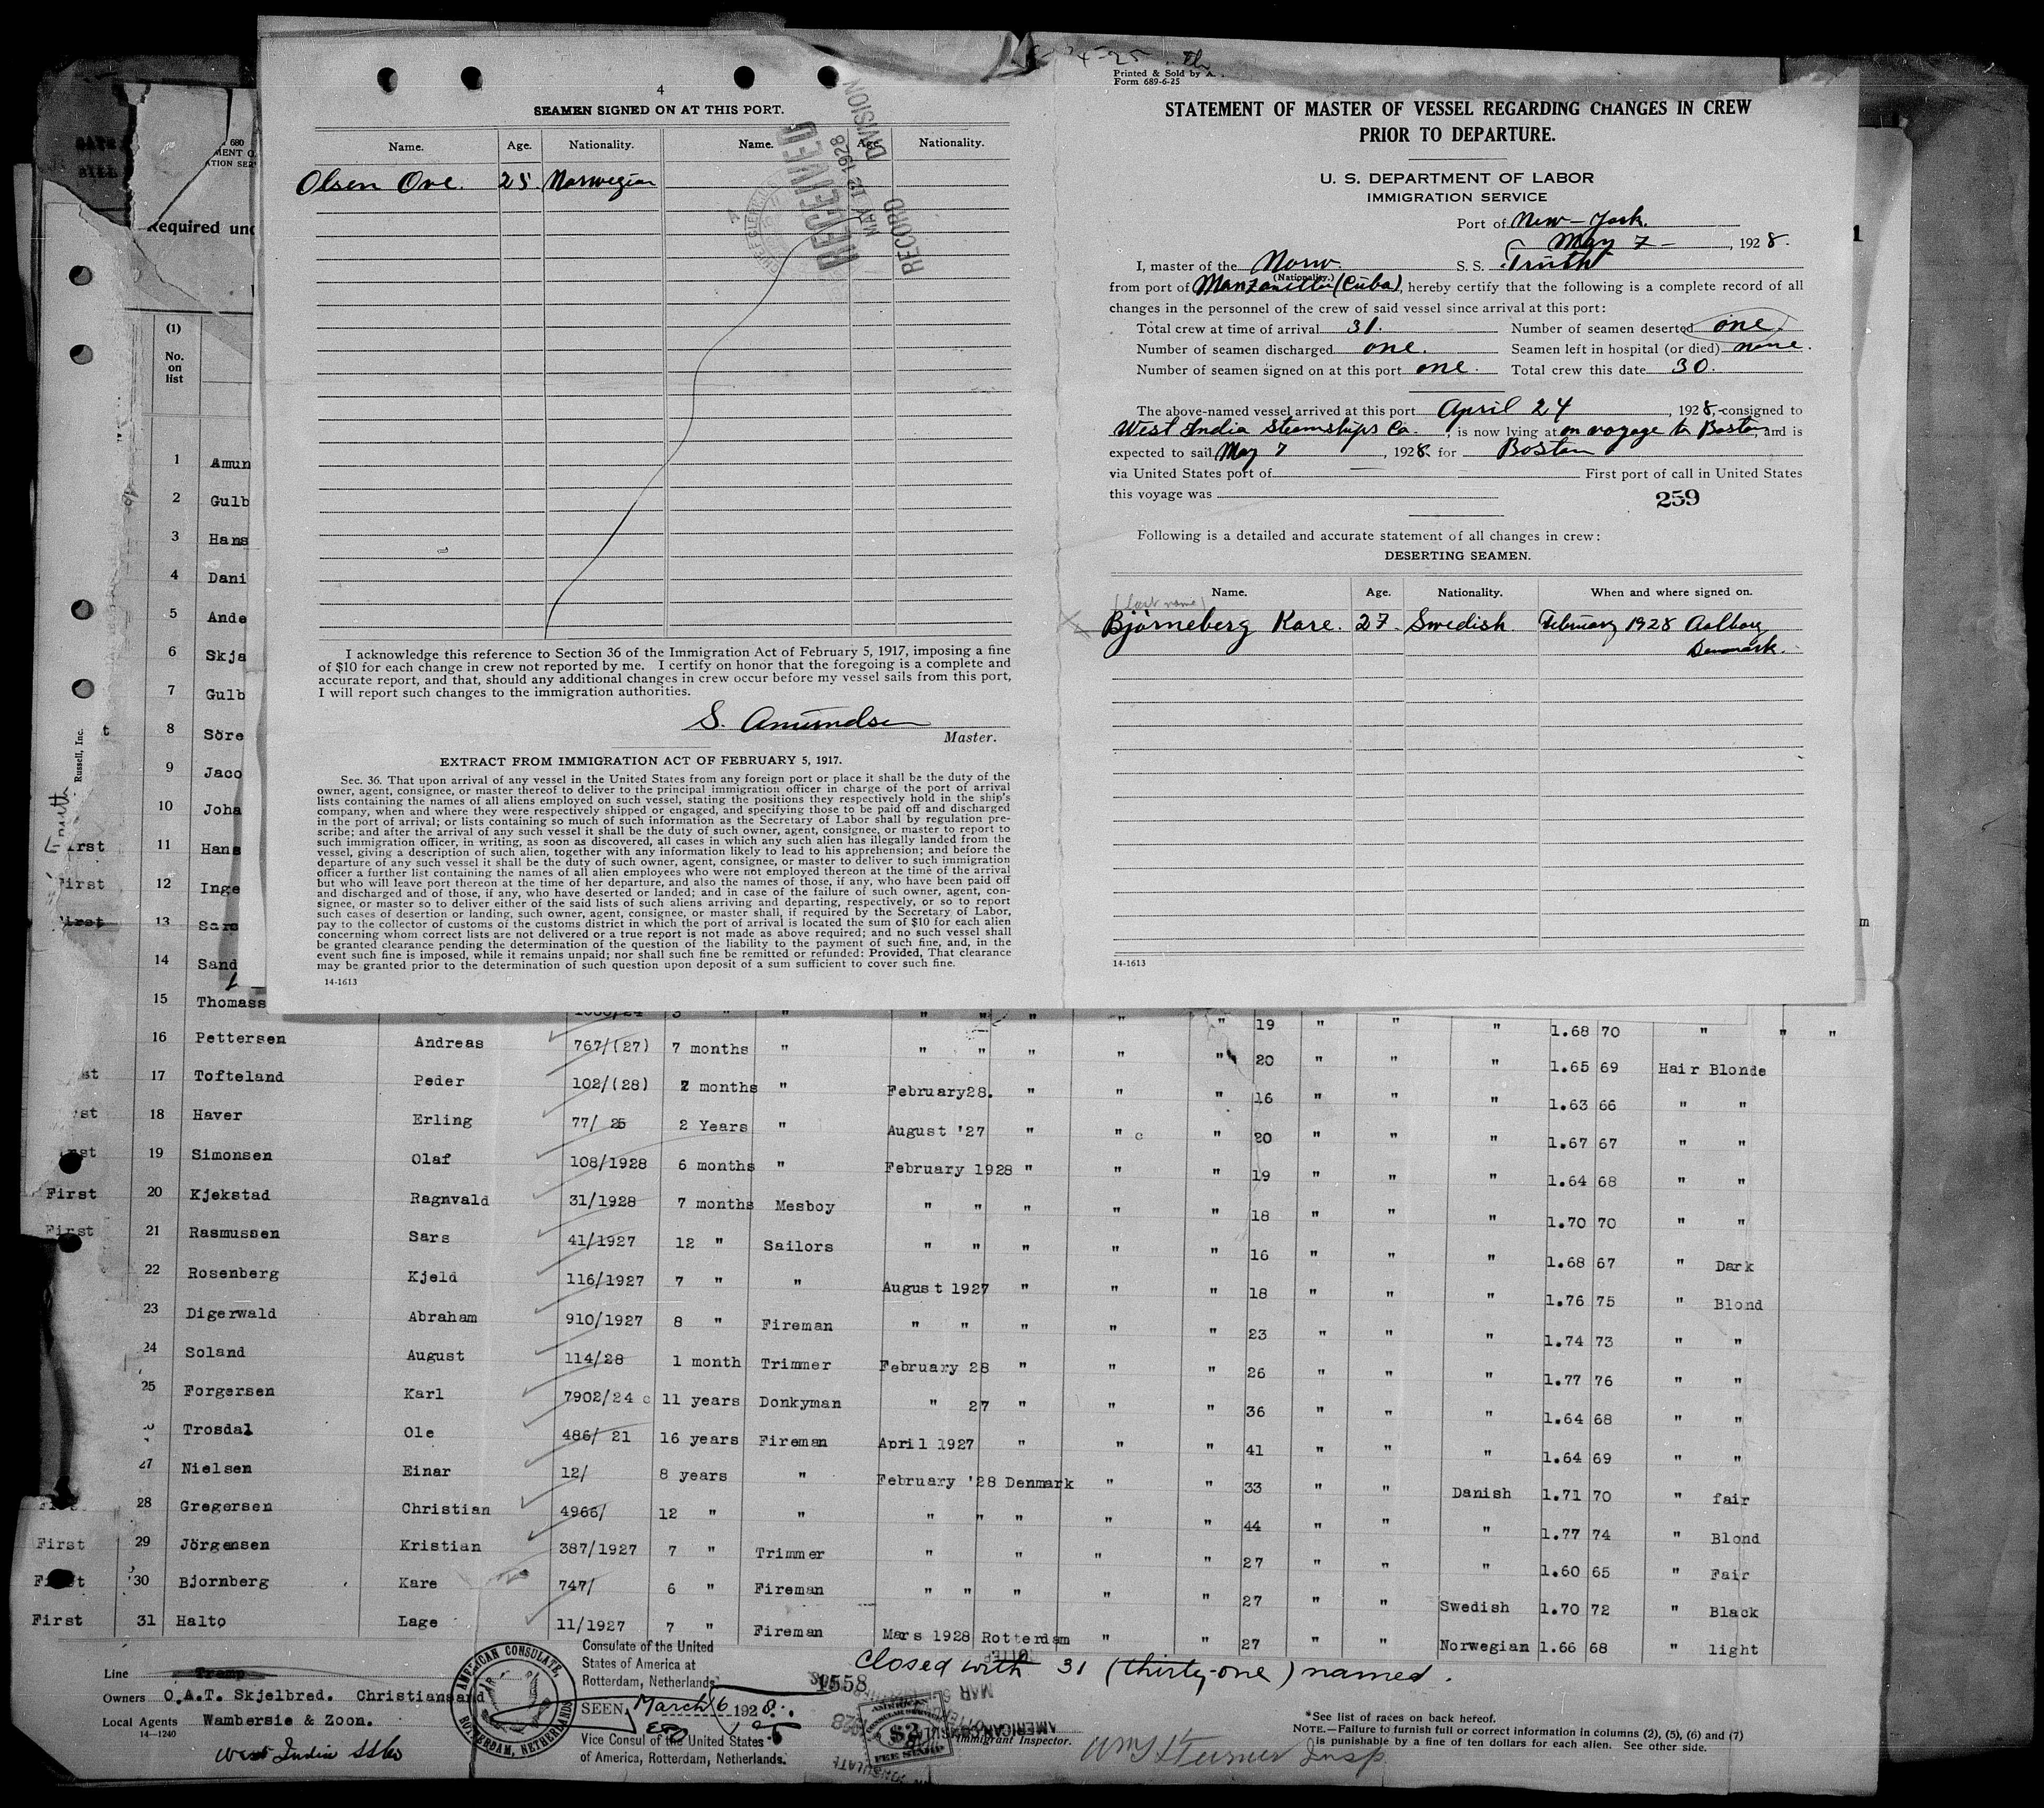 4
SEAMEN SIGNED ON AT THIS PORT.
Name. Age. Nationality. Name. Age. Nationality.
Olsen Ove. 25. Norwegian
RECEIVED
MAY 12 1928
RECORD DIVISION
I acknowledge this reference to Section 36 of the Immigration Act of February 5, 1917, imposing a fine
of $10 for each change in crew not reported by me. I certify on honor that the foregoing is a complete and
accurate report, and that, should any additional changes in crew occur before my vessel sails from this port,
I will report such changes to the immigration authorities.
S. Amundsen
Master.
EXTRACT FROM IMMIGRATION ACT OF FEBRUARY 5, 1917.
Sec. 36. That upon arrival of any vessel in the United States from any foreign port or place it shall be the duty of the
owner, agent, consignee, or master thereof to deliver to the principal immigration officer in charge of the port of arrival
lists containing the names of all aliens employed on such vessel, stating the positions they respectively hold in the ship's
company, when and where they were respectively shipped or engaged, and specifying those to be paid off and discharged
in the port of arrival; or lists containing so much of such information as the Secretary of Labor shall by regulation pre-
scribe; and after the arrival of any such vessel it shall be the duty of such owner, agent, consignee, or master to report to
such immigration officer, in writing, as soon as discovered, all cases in which any such alien has illegally landed from the
vessel, giving a description of such alien, together with any information likely to lead to his apprehension; and before the
departure of any such vessel it shall be the duty of such owner, agent, consignee, or master to deliver to such immigration
officer a further list containing the names of all alien employees who were not employed thereon at the time of the arrival
but who will leave port thereon at the time of her departure, and also the names of those, if any, who have been paid off
and discharged and of those, if any, who have deserted or landed; and in case of the failure of such owner, agent, con-
signee, or master so to deliver either of the said lists of such aliens arriving and departing, respectively, or so to report
such cases of desertion or landing, such owner, agent, consignee, or master shall, if required by the Secretary of Labor,
pay to the collector of customs of the customs district in which the port of arrival is located the sum of $10 for each alien
concerning whom correct lists are not delivered or a true report is not made as above required; and no such vessel shall
be granted clearance pending the determination of the question of the liability to the payment of such fine, and, in the
event such fine is imposed, while it remains unpaid; nor shall such fine be remitted or refunded: Provided, That clearance
may be granted prior to the determination of such question upon deposit of a sum sufficient to cover such fine.
14-1613
Printed & Sold by A.
Form 689-6-25
STATEMENT OF MASTER OF VESSEL REGARDING CHANGES IN CREW
PRIOR TO DEPARTURE.
U. S. DEPARTMENT OF LABOR
IMMIGRATION SERVICE
Port of New-York.
May 7-, 1928.
I, master of the Norw. S. S. Truth
(Nationality.)
from port of Manzanillo (Cuba), hereby certify that the following is a complete record of all
changes in the personnel of the crew of said vessel since arrival at this port:
Total crew at time of arrival 31. Number of seamen deserted one.
Number of seamen discharged one. Seamen left in hospital (or died) none.
Number of seamen signed on at this port one. Total crew this date 30.
The above-named vessel arrived at this port April 24, 1928, consigned to
West India Steamships Co., is now lying at on voyage to Boston, and is
expected to sail May 7, 1928 for Boston
via United States port of First port of call in United States
this voyage was
259
Following is a detailed and accurate statement of all changes in crew:
DESERTING SEAMEN.
Name. Age. Nationality. When and where signed on.
(last name)
Bjørneberg Kare. 27. Swedish February 1928 Aalborg
Denmark.
14-1613
680
Required und
(1)
No.
on
list
Russell, Inc.
1 Amun
2 Gulb
3 Hans
4 Dani
5 Ande
6 Skja
7 Gulb
8 Söre
9 Jaco
10 Joha
11 Hans
12 Inge
13 Sars
14 Sand
15 Thomass " " " " " " 19 " " " 1.68 70 " " "
16 Pettersen Andreas 767/(27) 7 months " " " " " " 20 " " " 1.65 69 Hair Blonde
17 Tofteland Peder 102/(28) 2 months " February28. " " " 16 " " " 1.63 66 " "
18 Haver Erling 77/ 25 2 Years " August '27 " " " 20 " " " 1.67 67 " "
19 Simonsen Olaf 108/1928 6 months " February 1928 " " " 19 " " " 1.64 68 " "
First 20 Kjekstad Ragnvald 31/1928 7 months Mesboy " " " " " 18 " " " 1.70 70 " "
First 21 Rasmussen Sars 41/1927 12 " Sailors " " " " " 16 " " " 1.68 67 " Dark
22 Rosenberg Kjeld 116/1927 7 " " August 1927 " " " 18 " " " 1.76 75 " Blond
23 Digerwald Abraham 910/1927 8 " Fireman " " " " " 23 " " " 1.74 73 " "
24 Soland August 114/28 1 month Trimmer February 28 " " " 26 " " " 1.77 76 " "
25 Forgersen Karl 7902/24 c 11 years Donkyman " 27 " " " 36 " " " 1.64 68 " "
Trosdal Ole 486/ 21 16 years Fireman April 1927 " " " 41 " " " 1.64 69 " "
27 Nielsen Einar 12/ 8 years " February '28 Denmark " " 33 " " Danish 1.71 70 " fair
28 Gregersen Christian 4966/ 12 " " " " " " " 44 " " " 1.77 74 " Blond
First 29 Jörgensen Kristian 387/1927 7 " Trimmer " " " " 27 " " " 1.60 65 " Fair
First 30 Bjornberg Kare 747/ 6 " Fireman " " " " " 27 " " Swedish 1.70 72 " Black
First 31 Halto Lage 11/1927 7 " Fireman Mars 1928 Rotterdam " " 27 " " Norwegian 1.66 68 " light
Closed with 31 (thirty-one) named.
Line Tramp
Owners O.A.T. Skjelbred. Christiansand
Local Agents Wambersie & Zoon.
14-1240
West India SSCo
AMERICAN CONSULATE, ROTTERDAM, NETHERLANDS
Consulate of the United
States of America at
Rotterdam, Netherlands
SEEN March 6 1928.
Vice Consul of the United States
of America, Rotterdam, Netherlands.
1558
AMERICAN
CONSULAR SERVICE
$2
FEE STAMP
Immigrant Inspector.
*See list of races on back hereof.
NOTE.—Failure to furnish full or correct information in columns (2), (5), (6) and (7)
is punishable by a fine of ten dollars for each alien. See other side.